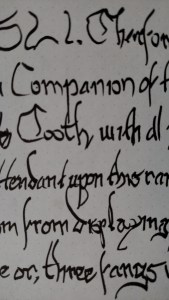 521. Therefor
Companion of t
Tooth, with all
ttendant upon this ran
m from displaying
e or; three fangs